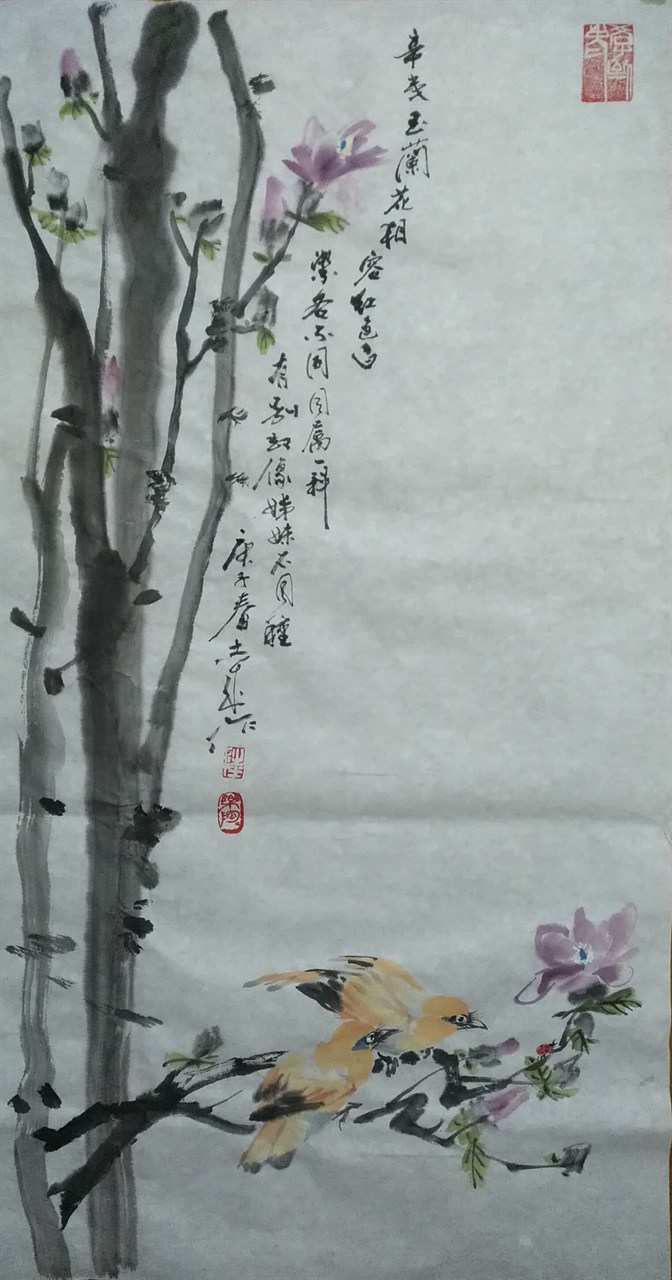 辛夷玉蘭花相
容紅色白
紫各不同同属一科
有别却像姊妹不同種
庚子春
作